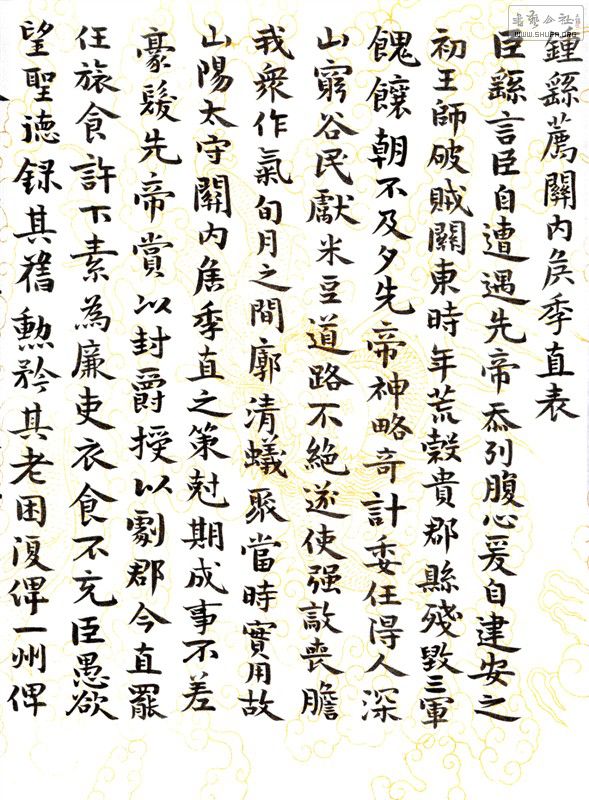 鍾繇薦關内侯季直表
臣繇言臣自遭遇先帝忝列腹心爰自建安之
初王師破賊關東時年荒穀貴郡縣殘毀三軍
餽饟朝不及夕先帝神略奇計委任得人深
山窮谷民獻米豆道路不絕遂使强敵喪膽
我衆作氣旬月之間廓清蟻聚當時實用故
山陽太守關内侯季直之策尅期成事不差
豪髮先帝賞以封爵授以劇郡今直罷
任旅食許下素為廉吏衣食不充臣愚欲
望聖德録其舊勲矜其老困復俾一州俾
書藝公社
WWW.SHUFA.ORG